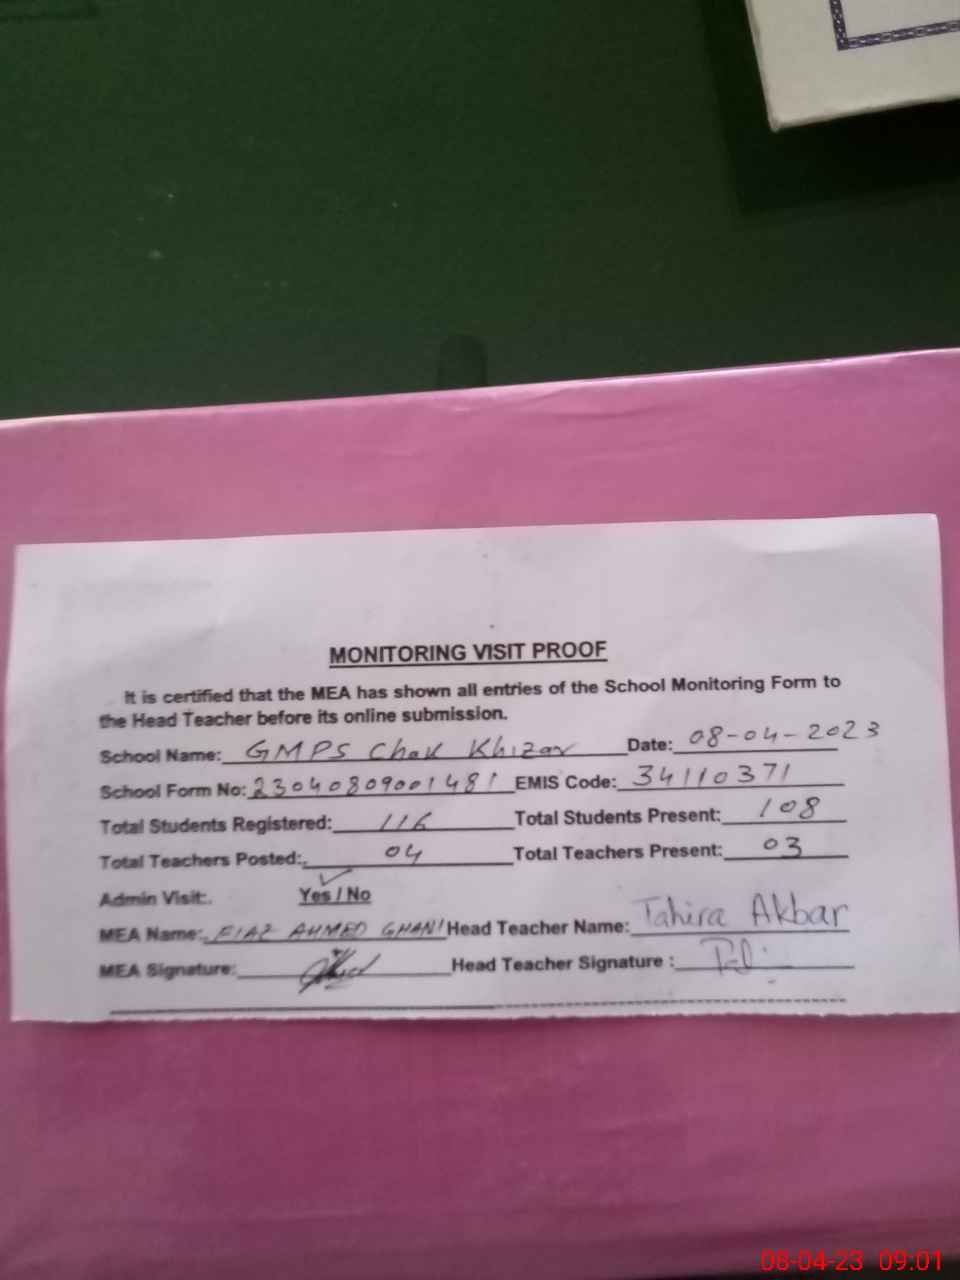 MONITORING VISIT PROOF
It is certified that the MEA has shown all entries of the School Monitoring Form to
the Head Teacher before its online submission.
School Name: GMPS Chak Khizar Date: 08-04-2023
School Form No: 23040809001481 EMIS Code: 34110371
Total Students Registered: 116 Total Students Present: 108
Total Teachers Posted: 04 Total Teachers Present: 03
Admin Visit: Yes / No
MEA Name: FIAZ AHMED GHANI Head Teacher Name: Tahira Akbar
MEA Signature: Head Teacher Signature :
08-04-23 09:01